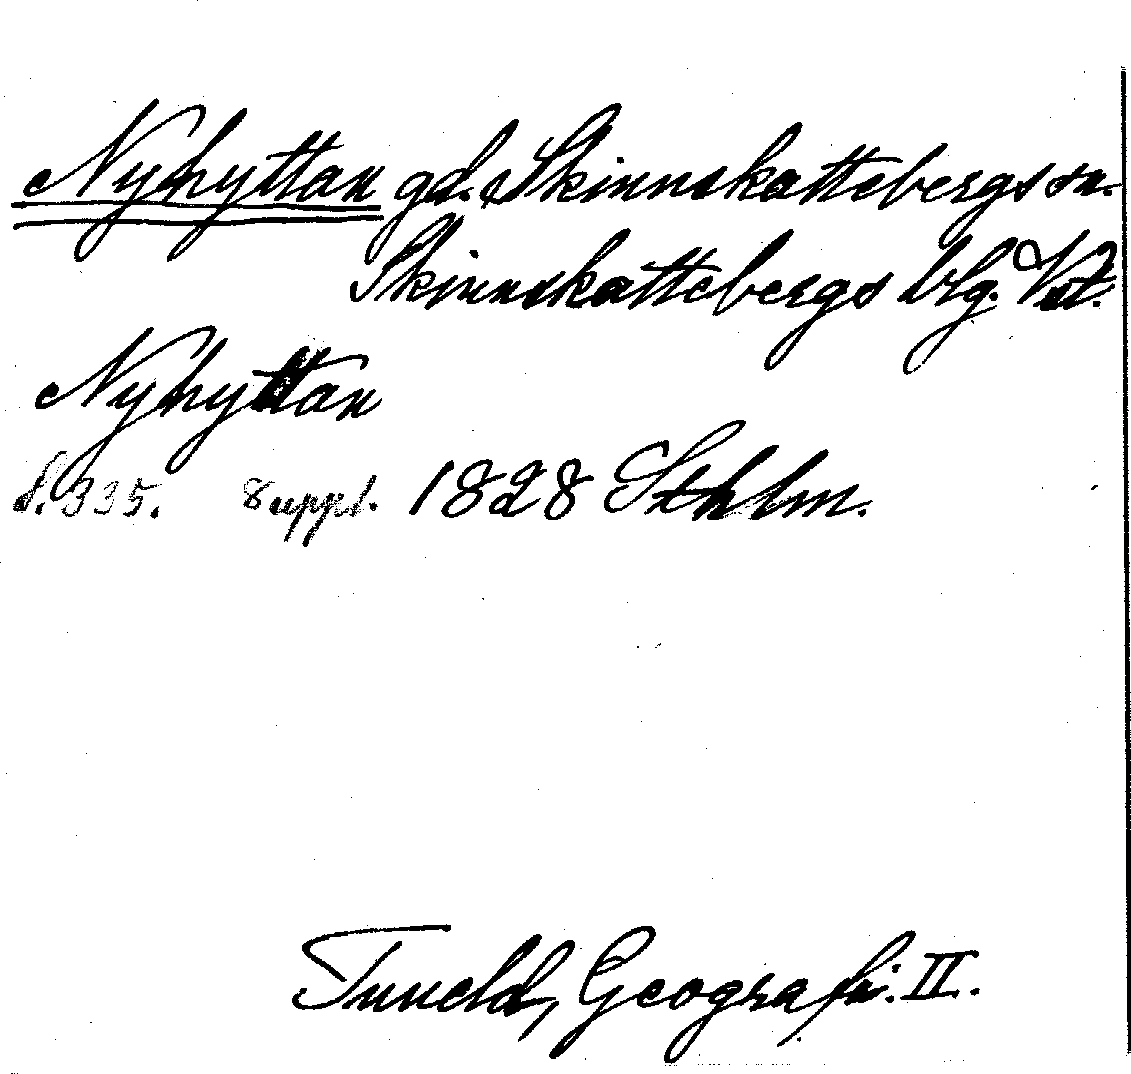 Nyhyttan gd. Skinnskattebergs sn.
Skinnskattebergs blg. Vstm.
Nyhyttan
S. 335. 8 uppl. 1828 Sthlm.
Tuneld, Geografi. II.